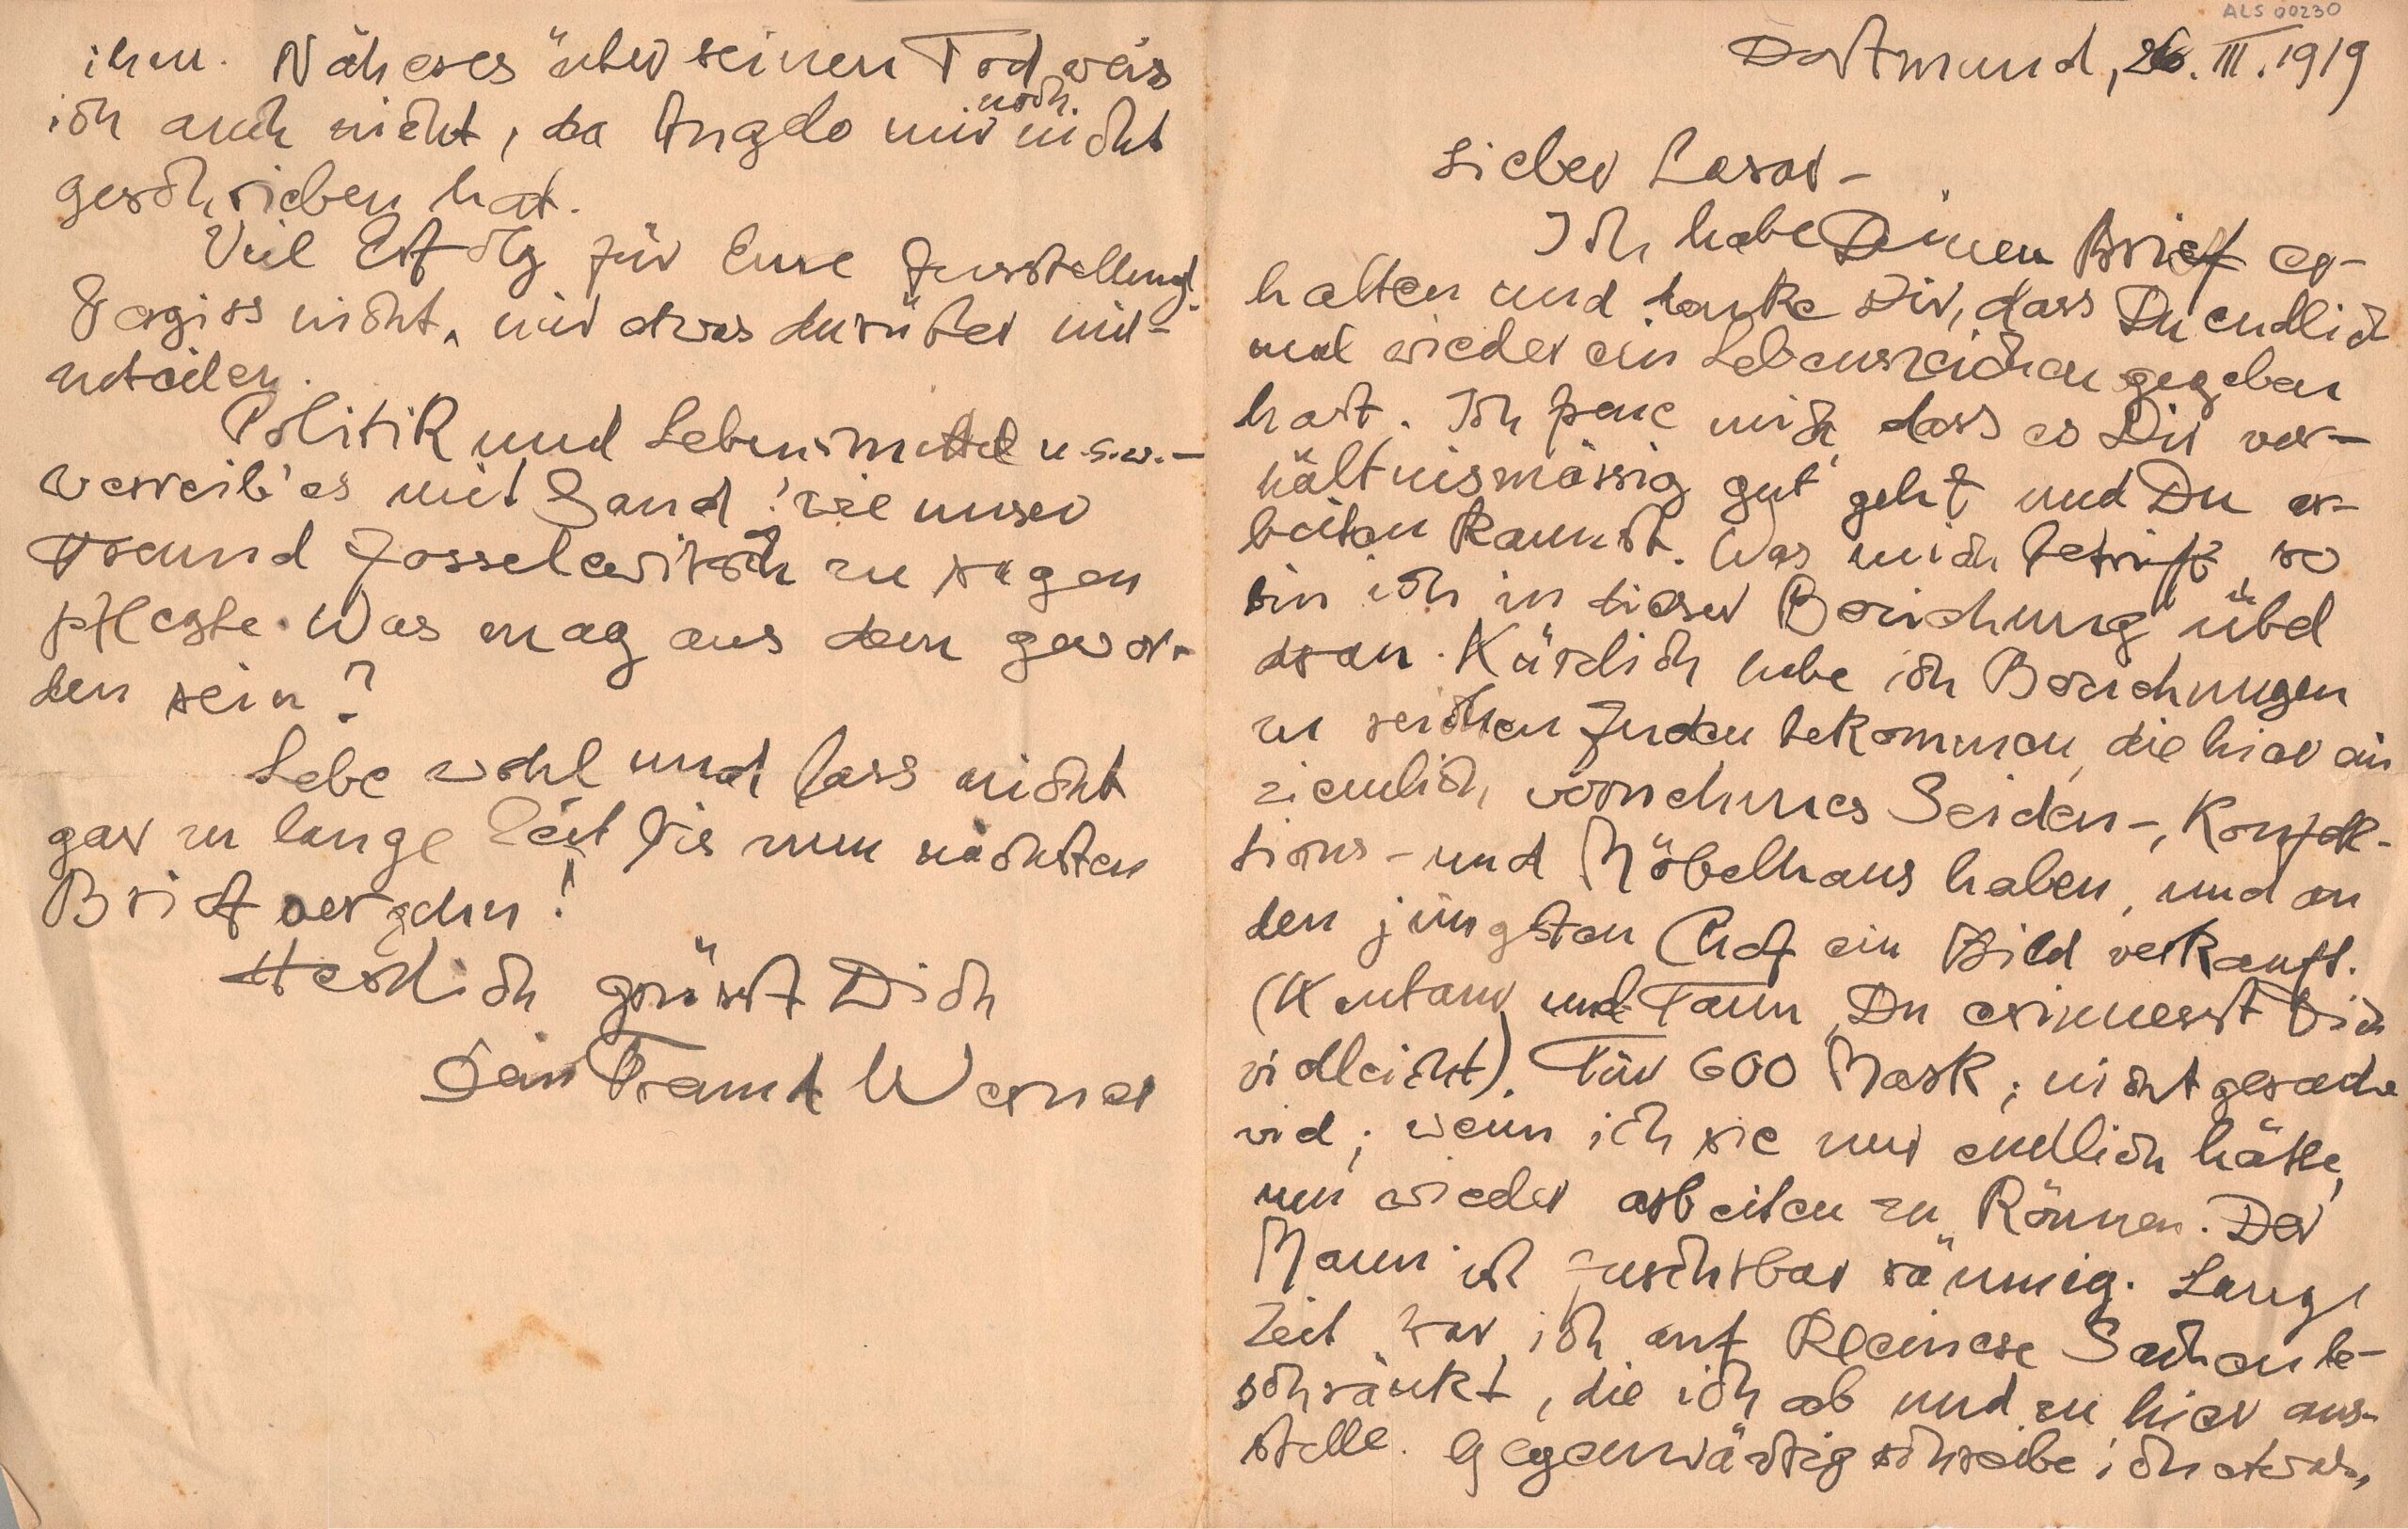 ALS 00230
Dortmund, 26. III. 1919
Lieber Lasar –
Ich habe Deinen Brief er-
halten und danke Dir, dass Du endlich
mal wieder ein Lebenszeichen gegeben
hast. Ich freue mich, dass es Dir ver-
hältnismässig gut geht und Du ar-
beiten kannst. Was mich betrifft, so
bin ich in dieser Beziehung übel
dran. Kürzlich habe ich Beziehungen
zu reichen Juden bekommen, die hier ein
ziemlich vornehmes Seiden-, Konfek-
tions- und Möbelhaus haben, und an
den jüngsten Chef ein Bild verkauft.
(Kentaur und Faun, Du erinnerst Dich
vielleicht). Für 600 Mark; nicht gerade
viel; wenn ich sie nur endlich hätte,
um wieder arbeiten zu können. Der
Mann ist furchtbar säumig. Lange
Zeit war ich auf kleinere Sachen be-
schränkt, die ich ab und zu hier aus-
stelle. Gegenwärtig schreibe ich etwas,
ihm. Näheres über seinen Tod weis
ich auch nicht, da Angelo mir noch nicht
geschrieben hat.
Viel Erfolg für Eure Ausstellung!
Vergiss nicht, mir etwas darüber mit-
zuteilen.
Politik und Lebensmittel u.s.w. –
verreib' es mit Sand! wie unser
Freund Josselewitsch zu sagen
pflegte. Was mag aus dem gewor-
den sein?
Lebe wohl und lass nicht
gar zu lange Zeit bis zum nächsten
Brief vergehn!
Herzlich grüsst Dich
Dein Freund Werner